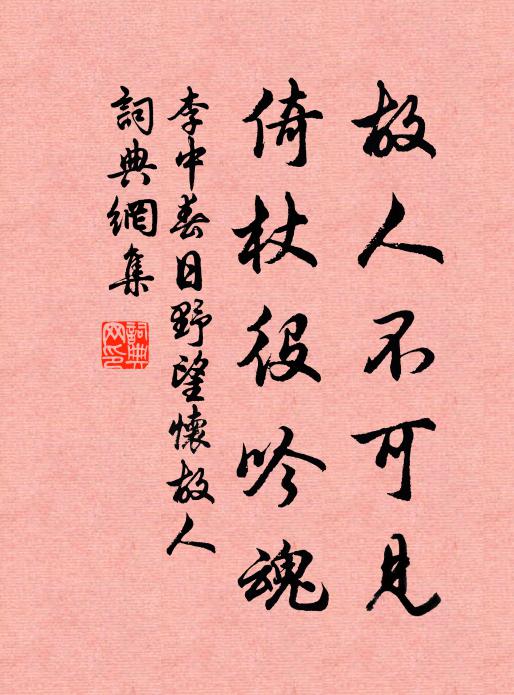 故人不可見
倚杖役吟魂
李中春日野望懷故人
詞典網集
詞典網印